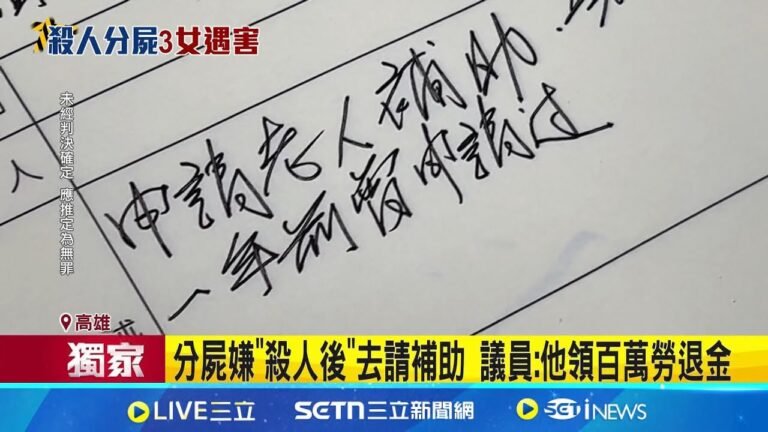 殺人分屍3女遇害
未經判決確定 應推定為無罪
人
申請老人補助.
一年前曾申請過
高雄
獨家
分屍嫌"殺人後"去請補助 議員:他領百萬勞退金
LIVE三立
SETN三立新聞網
SETi NEWS